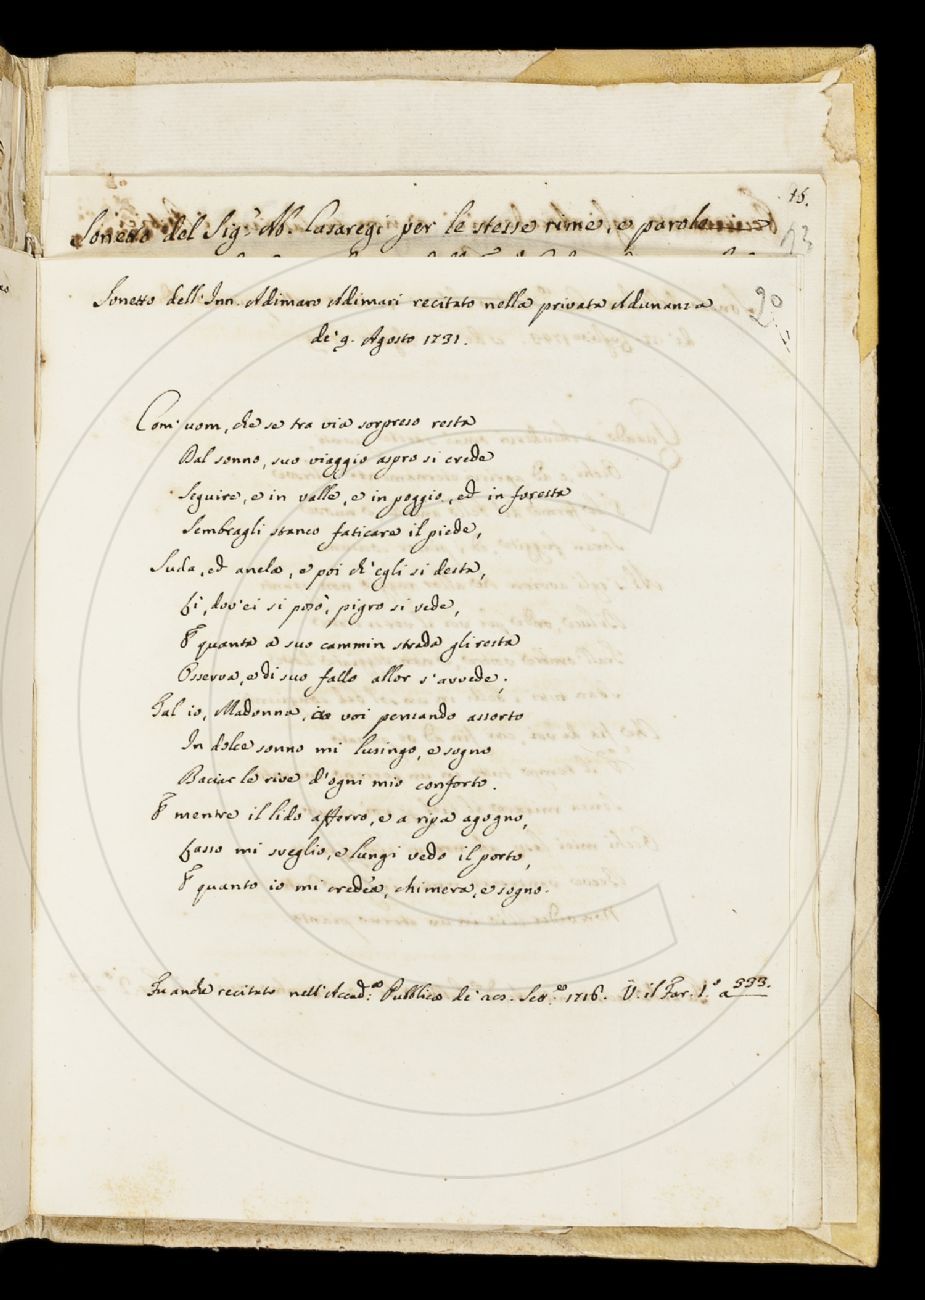 16.
Sonetto del Sig.r Ab. Casaregi per le stesse rime, e parole
Sonetto dell'Inn. Adimaro Adimari recitato nella privata Adunanza
de' 9. Agosto 1731.
20
Com' uom, che se tra via sorpreso resta
Dal sonno, suo viaggio aspro si crede
Seguire, e in valle, e in poggio, ed in foresta
Sembragli stanco faticare il piede,
Suda, ed anela, e poi ch'egli si desta,
Lì, dov'ei si posò, pigro si vede,
E quanta a suo cammin strada gli resta
Osserva, e di suo fallo allor s'avvede;
Tal io, Madonna, in voi pensando assorto
In dolce sonno mi lusingo, e sogno
Baciar le rive d'ogni mio conforto.
E mentre il lido afferro, e a ripa agogno,
Lasso mi sveglio, e lungi vedo il porto,
E quanto io mi credea, chimera, e sogno.
Fu anche recitato nell'Accad.a Pubblica de' Sett.re 1716. V. il Far. 1.o a 333.